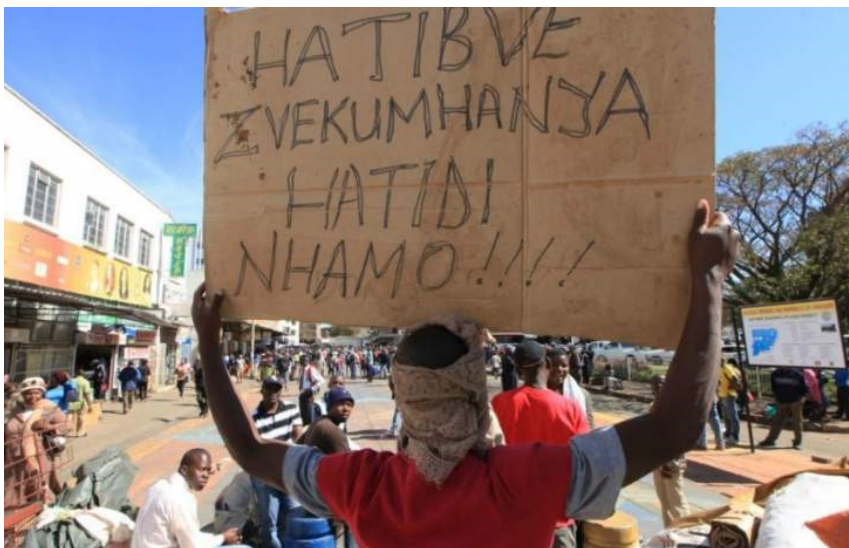 HATIBVE
ZVEKUMHANYA
HATIDI
NHAMO!!!!